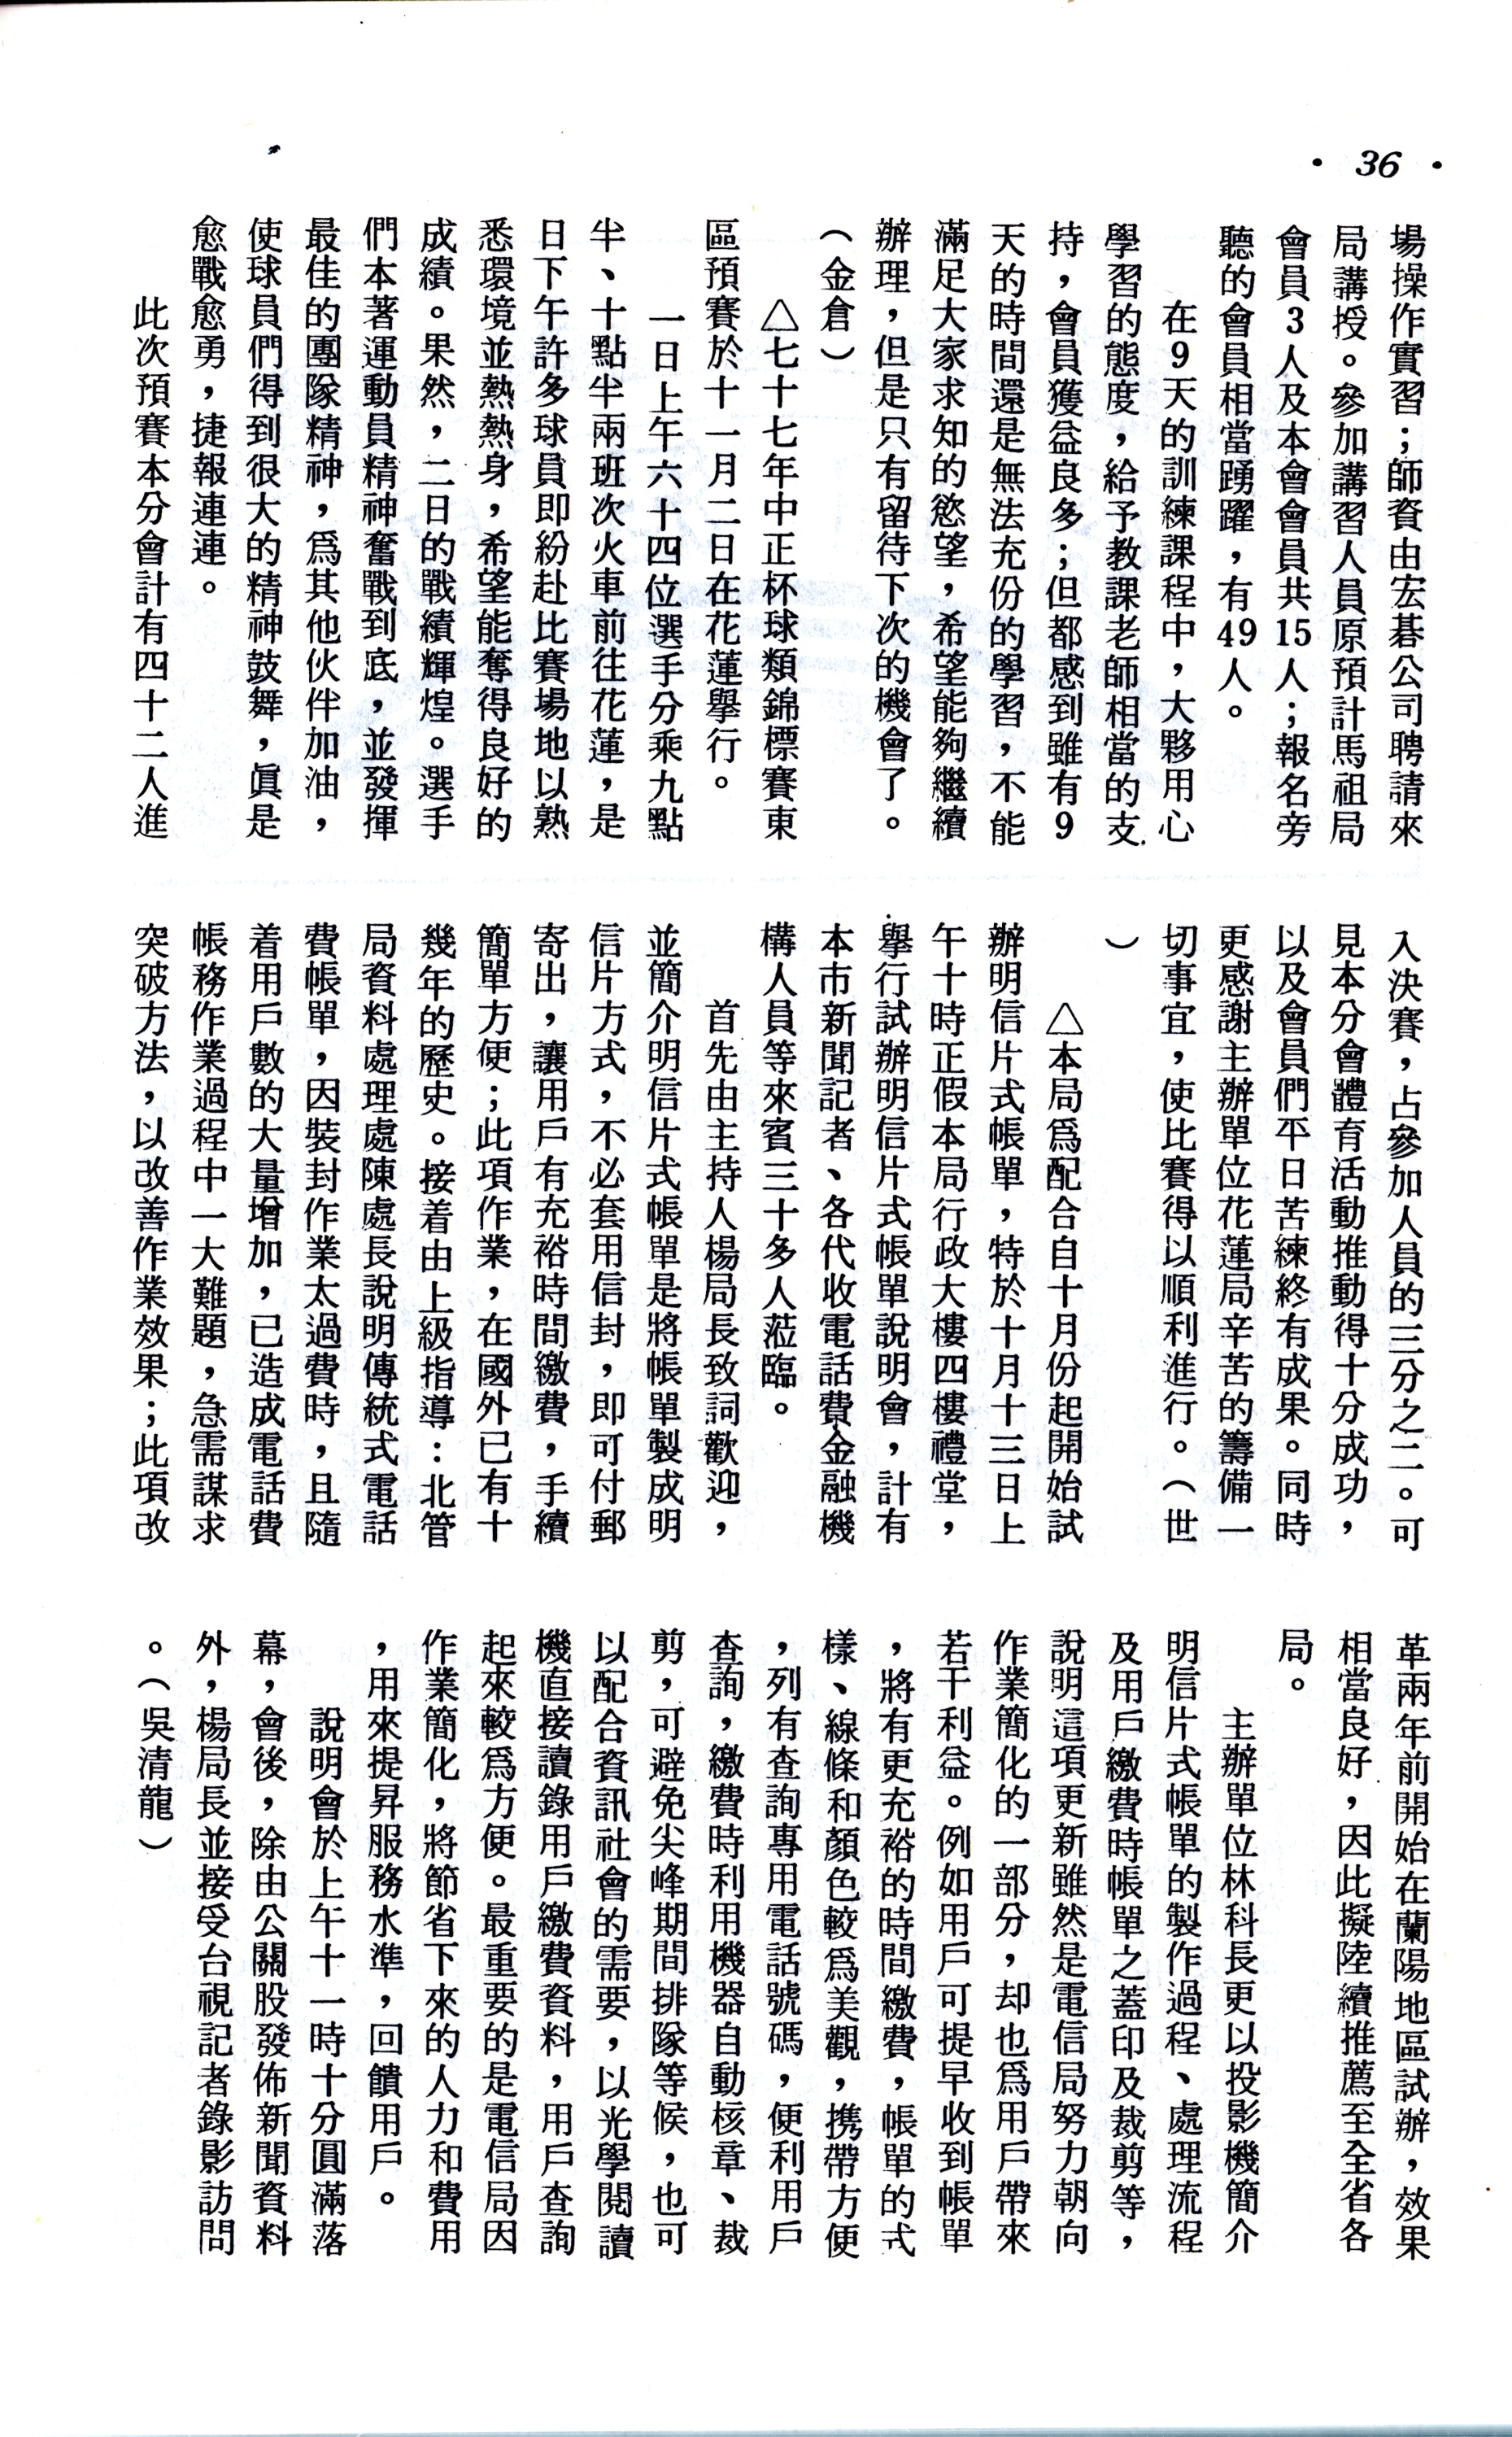 • 36 •
場操作實習；師資由宏碁公司聘請來
局講授。參加講習人員原預計馬祖局
會員3人及本會會員共15人；報名旁
聽的會員相當踴躍，有49人。
在9天的訓練課程中，大夥用心
學習的態度，給予教課老師相當的支
持，會員獲益良多；但都感到雖有9
天的時間還是無法充份的學習，不能
滿足大家求知的慾望，希望能夠繼續
辦理，但是只有留待下次的機會了。
（金倉）
△七十七年中正杯球類錦標賽東
區預賽於十一月二日在花蓮舉行。
一日上午六十四位選手分乘九點
半、十點半兩班次火車前往花蓮，是
日下午許多球員即紛赴比賽場地以熟
悉環境並熱熱身，希望能奪得良好的
成績。果然，二日的戰績輝煌。選手
們本著運動員精神奮戰到底，並發揮
最佳的團隊精神，爲其他伙伴加油，
使球員們得到很大的精神鼓舞，眞是
愈戰愈勇，捷報連連。
此次預賽本分會計有四十二人進
入決賽，占參加人員的三分之二。可
見本分會體育活動推動得十分成功，
以及會員們平日苦練終有成果。同時
更感謝主辦單位花蓮局辛苦的籌備一
切事宜，使比賽得以順利進行。（世
）
△本局爲配合自十月份起開始試
辦明信片式帳單，特於十月十三日上
午十時正假本局行政大樓四樓禮堂，
舉行試辦明信片式帳單說明會，計有
本市新聞記者、各代收電話費金融機
構人員等來賓三十多人蒞臨。
首先由主持人楊局長致詞歡迎，
並簡介明信片式帳單是將帳單製成明
信片方式，不必套用信封，即可付郵
寄出，讓用戶有充裕時間繳費，手續
簡單方便；此項作業，在國外已有十
幾年的歷史。接着由上級指導：北管
局資料處理處陳處長說明傳統式電話
費帳單，因裝封作業太過費時，且隨
着用戶數的大量增加，已造成電話費
帳務作業過程中一大難題，急需謀求
突破方法，以改善作業效果；此項改
革兩年前開始在蘭陽地區試辦，效果
相當良好，因此擬陸續推薦至全省各
局。
主辦單位林科長更以投影機簡介
明信片式帳單的製作過程、處理流程
及用戶繳費時帳單之蓋印及裁剪等，
說明這項更新雖然是電信局努力朝向
作業簡化的一部分，却也爲用戶帶來
若干利益。例如用戶可提早收到帳單
，將有更充裕的時間繳費，帳單的式
樣、線條和顏色較爲美觀，携帶方便
，列有查詢專用電話號碼，便利用戶
查詢，繳費時利用機器自動核章、裁
剪，可避免尖峰期間排隊等候，也可
以配合資訊社會的需要，以光學閱讀
機直接讀錄用戶繳費資料，用戶查詢
起來較爲方便。最重要的是電信局因
作業簡化，將節省下來的人力和費用
，用來提昇服務水準，回饋用戶。
說明會於上午十一時十分圓滿落
幕，會後，除由公關股發佈新聞資料
外，楊局長並接受台視記者錄影訪問
。（吳清龍）